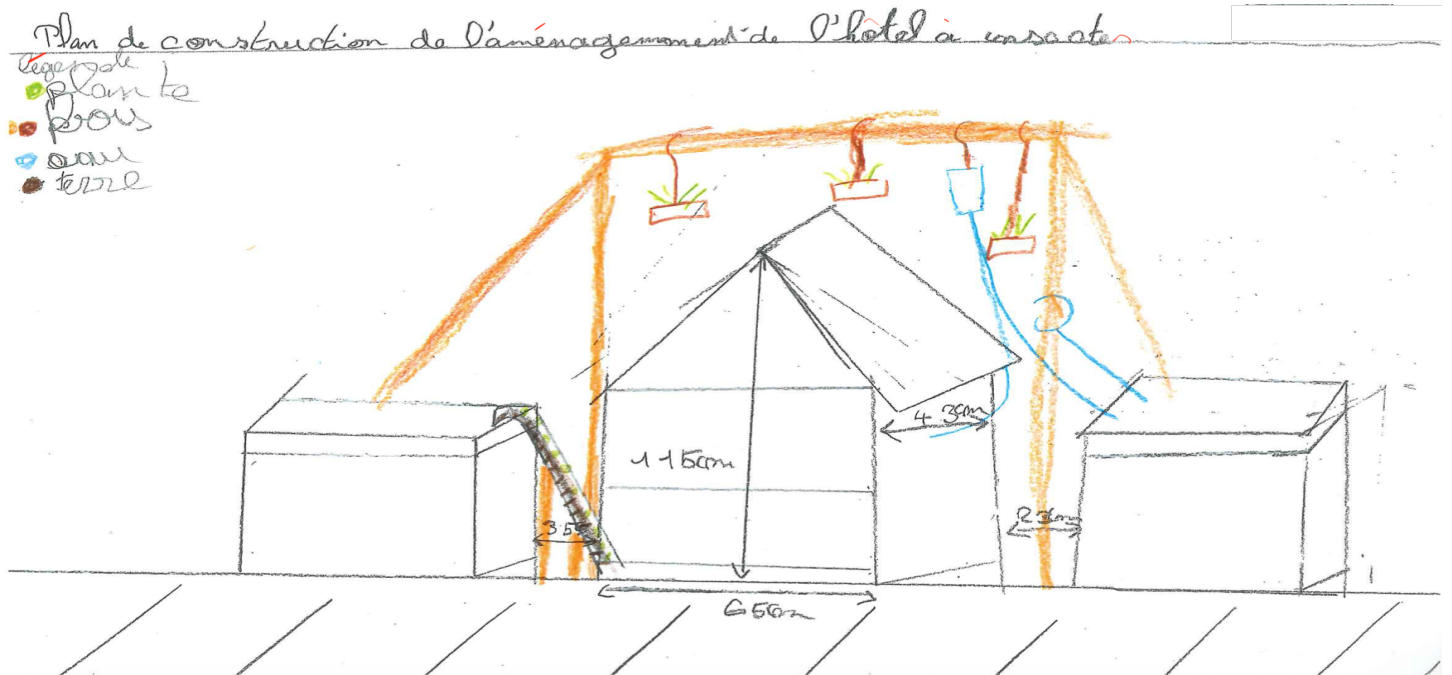 Plan de construction de l'aménagemoment de l'hôtel à insectes
légende
plante
bois
eau
terre
43cm
115cm
35
23cm
65cm